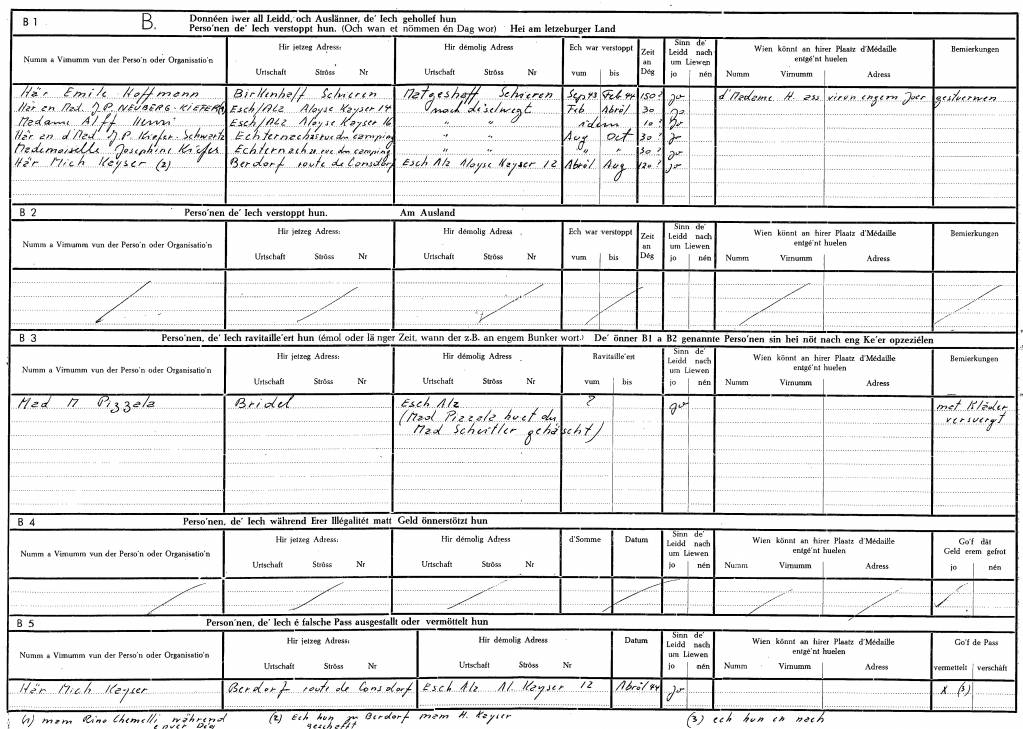 B 1 B. Donnéen iwer all Leidd, och Auslänner, de' Iech gehollef hun
Perso'nen de' Iech verstoppt hun. (Och wan et nömmen én Dag wor) Hei am letzeburger Land
Numm a Virnumm vun der Perso'n oder Organisatio'n Hir jetzeg Adress: Urtschaft Ströss Nr Hir démolig Adress Urtschaft Ströss Nr Ech war verstoppt vum bis Zeit an Dég Sinn de' Leidd nach um Liewen jo nén Wien könnt an hirer Plaatz d'Médaille entgé'nt huelen Numm Virnumm Adress Bemierkungen
Här Emile Hoffmann Birkenhaff Schieren Metgeshaff Schieren Sep 43 Feb 44 150? jo d'Madame H. ass virun engem Joer gestuerwen
Här en Mad. J.P. NEUBERG-KIEFER (1) Esch/Alz Aloyse Kayser 14 nach diselwegt Feb Abröl 30 jo
Madame Alff Henri Esch/Alz Aloyse Kayser 16 " " idem 10? jo
Här en d'Mad. J.P. Kiefer-Schwartz Echternach 25 rue du camping " " Aug Oct 30? jo
Mademoiselle Josephine Kiefer Echternach 25 rue du camping " " " " 30? jo
Här Mich Kayser (2) Berdorf route de Consdorf Esch Alz Aloyse Kayser 12 Abröl Aug 120? jo
B 2 Perso'nen de' Iech verstoppt hun. Am Ausland
Numm a Virnumm vun der Perso'n oder Organisatio'n Hir jetzeg Adress: Urtschaft Ströss Nr Hir démolig Adress Urtschaft Ströss Nr Ech war verstoppt vum bis Zeit an Dég Sinn de' Leidd nach um Liewen jo nén Wien könnt an hirer Plaatz d'Médaille entgé'nt huelen Numm Virnumm Adress Bemierkungen
B 3 Perso'nen, de' Iech ravitaille'ert hun (émol oder länger Zeit, wann der z.B. an engem Bunker wort.) De' önner B1 a B2 genannte Perso'nen sin hei nöt nach eng Ke'er opzeziélen
Numm a Virnumm vun der Perso'n oder Organisatio'n Hir jetzeg Adress: Urtschaft Ströss Nr Hir démolig Adress Urtschaft Ströss Nr Ravitaille'ert vum bis Sinn de' Leidd nach um Liewen jo nén Wien könnt an hirer Plaatz d'Médaille entgé'nt huelen Numm Virnumm Adress Bemierkungen
Mad M Pizzala Bridel Esch Alz ? jo met Kläder
(Mad Pizzala huet du versuergt
Mad Scheitler gehäscht)
B 4 Perso'nen, de' Iech während Erer Illégalitét matt Geld önnerstötzt hun
Numm a Virnumm vun der Perso'n oder Organisatio'n Hir jetzeg Adress: Urtschaft Ströss Nr Hir démolig Adress Urtschaft Ströss Nr d'Somme Datum Sinn de' Leidd nach um Liewen jo nén Wien könnt an hirer Plaatz d'Médaille entgé'nt huelen Numm Virnumm Adress Go'f dät Geld erem gefrot jo nén
B 5 Person'nen, de' Iech é falsche Pass ausgestallt oder vermöttelt hun
Numm a Virnumm vun der Perso'n oder Organisatio'n Hir jetzeg Adress: Urtschaft Ströss Nr Hir démolig Adress Urtschaft Ströss Nr Datum Sinn de' Leidd nach um Liewen jo nén Wien könnt an hirer Plaatz d'Médaille entgé'nt huelen Numm Virnumm Adress Go'f de Pass vermettelt verschäft
Här Mich Kayser Berdorf route de Consdorf Esch Alz Al. Kayser 12 Abröl 44 jo x (3)
(1) mam Rino Chemelli während (2) Ech hun zu Berdorf mam H. Kayser (3) ech hun en nach
geschafft